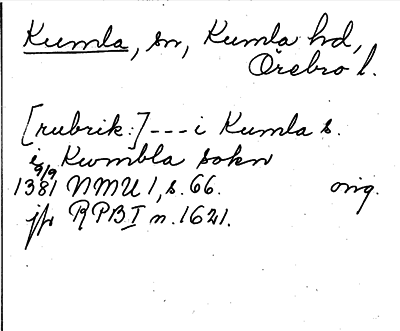 Kumla, sn, Kumla hd,
Örebro l.
[rubrik:] --- i Kumla s.
i Kwmbla sokn
9/9
1381 NMU 1, s. 66. orig.
jfr RPB I n. 1621.